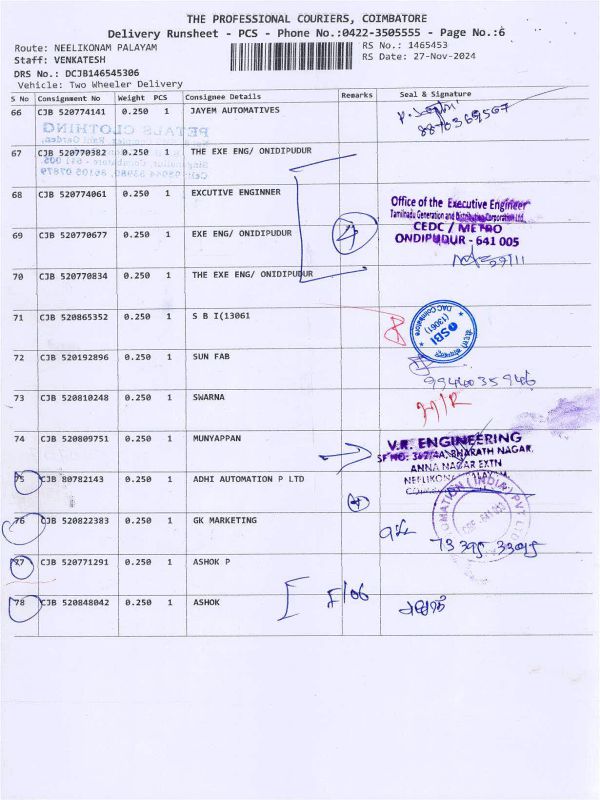 THE PROFESSIONAL COURIERS, COIMBATORE
Delivery Runsheet - PCS - Phone No.:0422-3505555 - Page No.:6
Route: NEELIKONAM PALAYAM
RS No.: 1465453
Staff: VENKATESH
RS Date: 27-Nov-2024
DRS No.: DCJB146545306
Vehicle: Two Wheeler Delivery
S No Consignment No Weight PCS Consignee Details Remarks Seal & Signature
66 CJB 520774141 0.250 1 JAYEM AUTOMATIVES
PETALS CLOTHING
67 CJB 520770382 0.250 1 THE EXE ENG/ ONIDIPUDUR
68 CJB 520774061 0.250 1 EXCUTIVE ENGINNER
Office of the Executive Engineer
Tamilnadu Generation and Distribution Corporation Ltd.
CEDC / METRO
ONDIPUDUR - 641 005
69 CJB 520770677 0.250 1 EXE ENG/ ONIDIPUDUR
4
70 CJB 520770834 0.250 1 THE EXE ENG/ ONIDIPUDUR
71 CJB 520865352 0.250 1 S B I(13061
SBI
(13061)
DAC Coimbatore
72 CJB 520192896 0.250 1 SUN FAB
9944035946
73 CJB 520810248 0.250 1 SWARNA
74 CJB 520809751 0.250 1 MUNYAPPAN
V.R. ENGINEERING
SF NO: 367/4A, BHARATH NAGAR,
ANNA NAGAR EXTN
75 CJB 80782143 0.250 1 ADHI AUTOMATION P LTD
76 CJB 520822383 0.250 1 GK MARKETING
77 CJB 520771291 0.250 1 ASHOK P
78 CJB 520848042 0.250 1 ASHOK